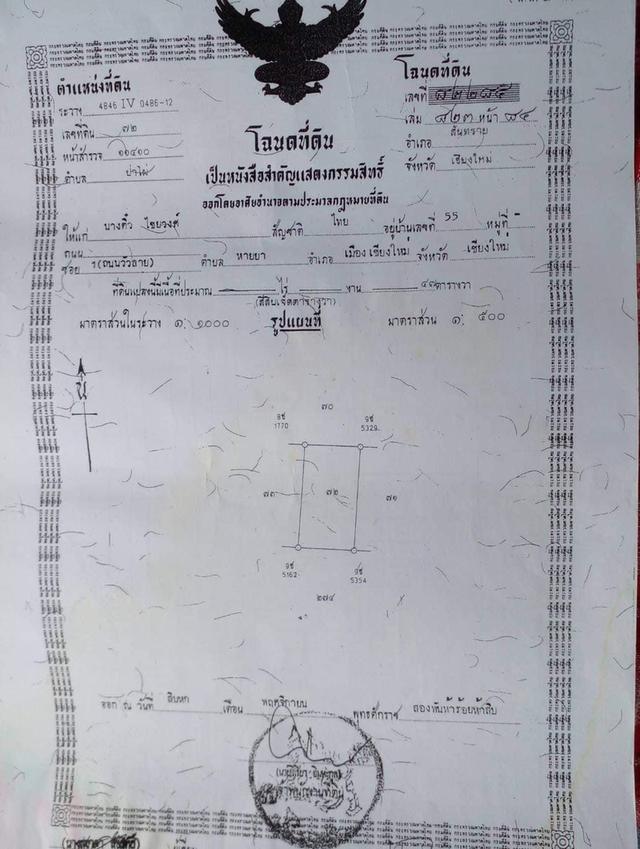 ตำแหน่งที่ดิน
ระวาง 4846 IV 0486-12
เลขที่ดิน ๗๒
หน้าสำรวจ ๑๑๔๑๐
ตำบล ป่าไผ่
โฉนดที่ดิน
เลขที่ ๘๒๒๘๕
เล่ม ๘๒๓ หน้า ๘๕
อำเภอ สันทราย
จังหวัด เชียงใหม่
โฉนดที่ดิน
เป็นหนังสือสำคัญแสดงกรรมสิทธิ์
ออกโดยอาศัยอำนาจตามประมวลกฎหมายที่ดิน
ให้แก่ นางคิ้ว ไชยวงศ์ สัญชาติ ไทย อยู่บ้านเลขที่ 55 หมู่ที่ -
ถนน
ซอย 1(ถนนวัวลาย) ตำบล หายยา อำเภอ เมืองเชียงใหม่ จังหวัด เชียงใหม่
ที่ดินแปลงนี้มีเนื้อที่ประมาณ - ไร่ - งาน ๔๗ ตารางวา
(สี่สิบเจ็ดตารางวา)
มาตราส่วนในระวาง ๑: ๑๐๐๐ รูปแผนที่ มาตราส่วน ๑: ๕๐๐
น
๗๐
1770
5329
๗๓ ๗๒ ๗๑
5162
5354
๒๗๔
ออก ณ วันที่ สิบหก เดือน พฤศจิกายน พุทธศักราช สองพันห้าร้อยห้าสิบ